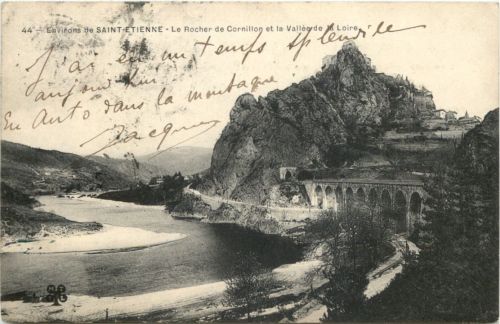 44 - Environs de SAINT-ETIENNE - Le Rocher de Cornillon et la Vallée de la Loire
J'ai eu un temps splendide
aujourd'hui
En auto dans la montagne
Jacques